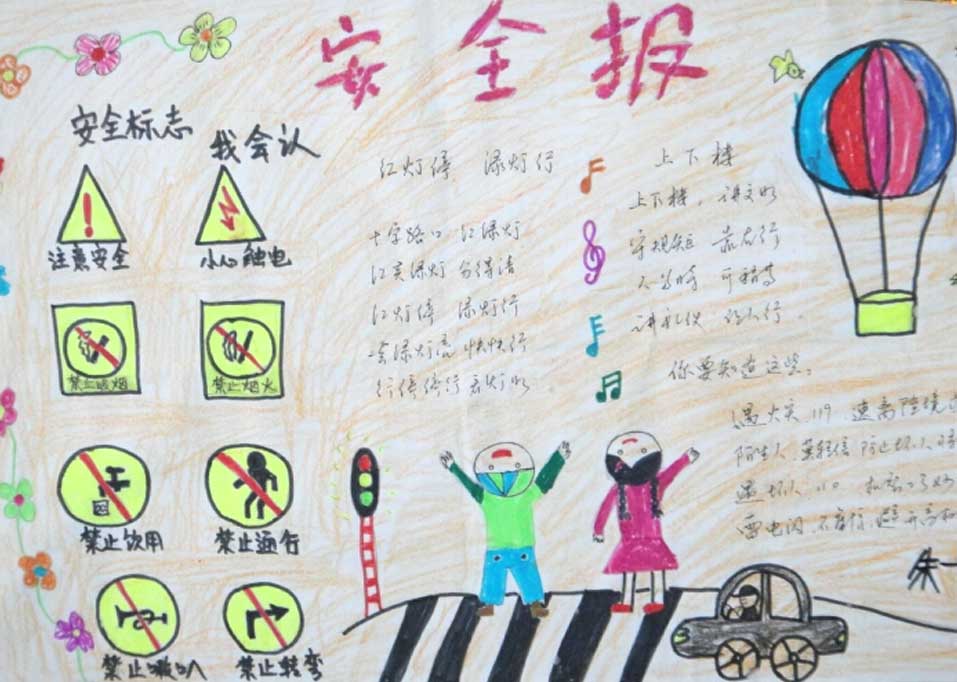 安全报
安全标志
我会认
注意安全
小心触电
禁止吸烟
禁止烟火
禁止饮用
禁止通行
禁止嗽叭
禁止转弯
红灯停 绿灯行
十字路口 红绿灯
红黄绿灯 分得清
红灯停 绿灯行
绿灯亮 快快行
行停停行看灯明
上下楼
上下楼,讲文明
守规矩 靠右行
讲礼仪
你要知道这些。
遇火灾 119 速离险境
陌生人 莫轻信 防止坏人
遇坏人 110
雷电闪 避开高
朱